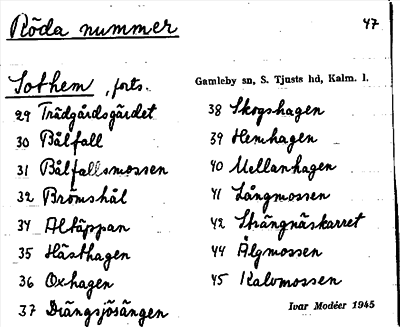 Röda nummer
47
Sothem, forts.
Gamleby sn, S. Tjusts hd, Kalm. l.
29 Trädgårdsgärdet
30 Bålfall
31 Bålfallsmossen
32 Brömshål
34 Altäppan
35 Hästhagen
36 Oxhagen
37 Drängsjösängen
38 Skogshagen
39 Hemhagen
40 Mellanhagen
41 Långmossen
42 Strängnäskarret
44 Älgmossen
45 Kalvmossen
Ivar Modéer 1945